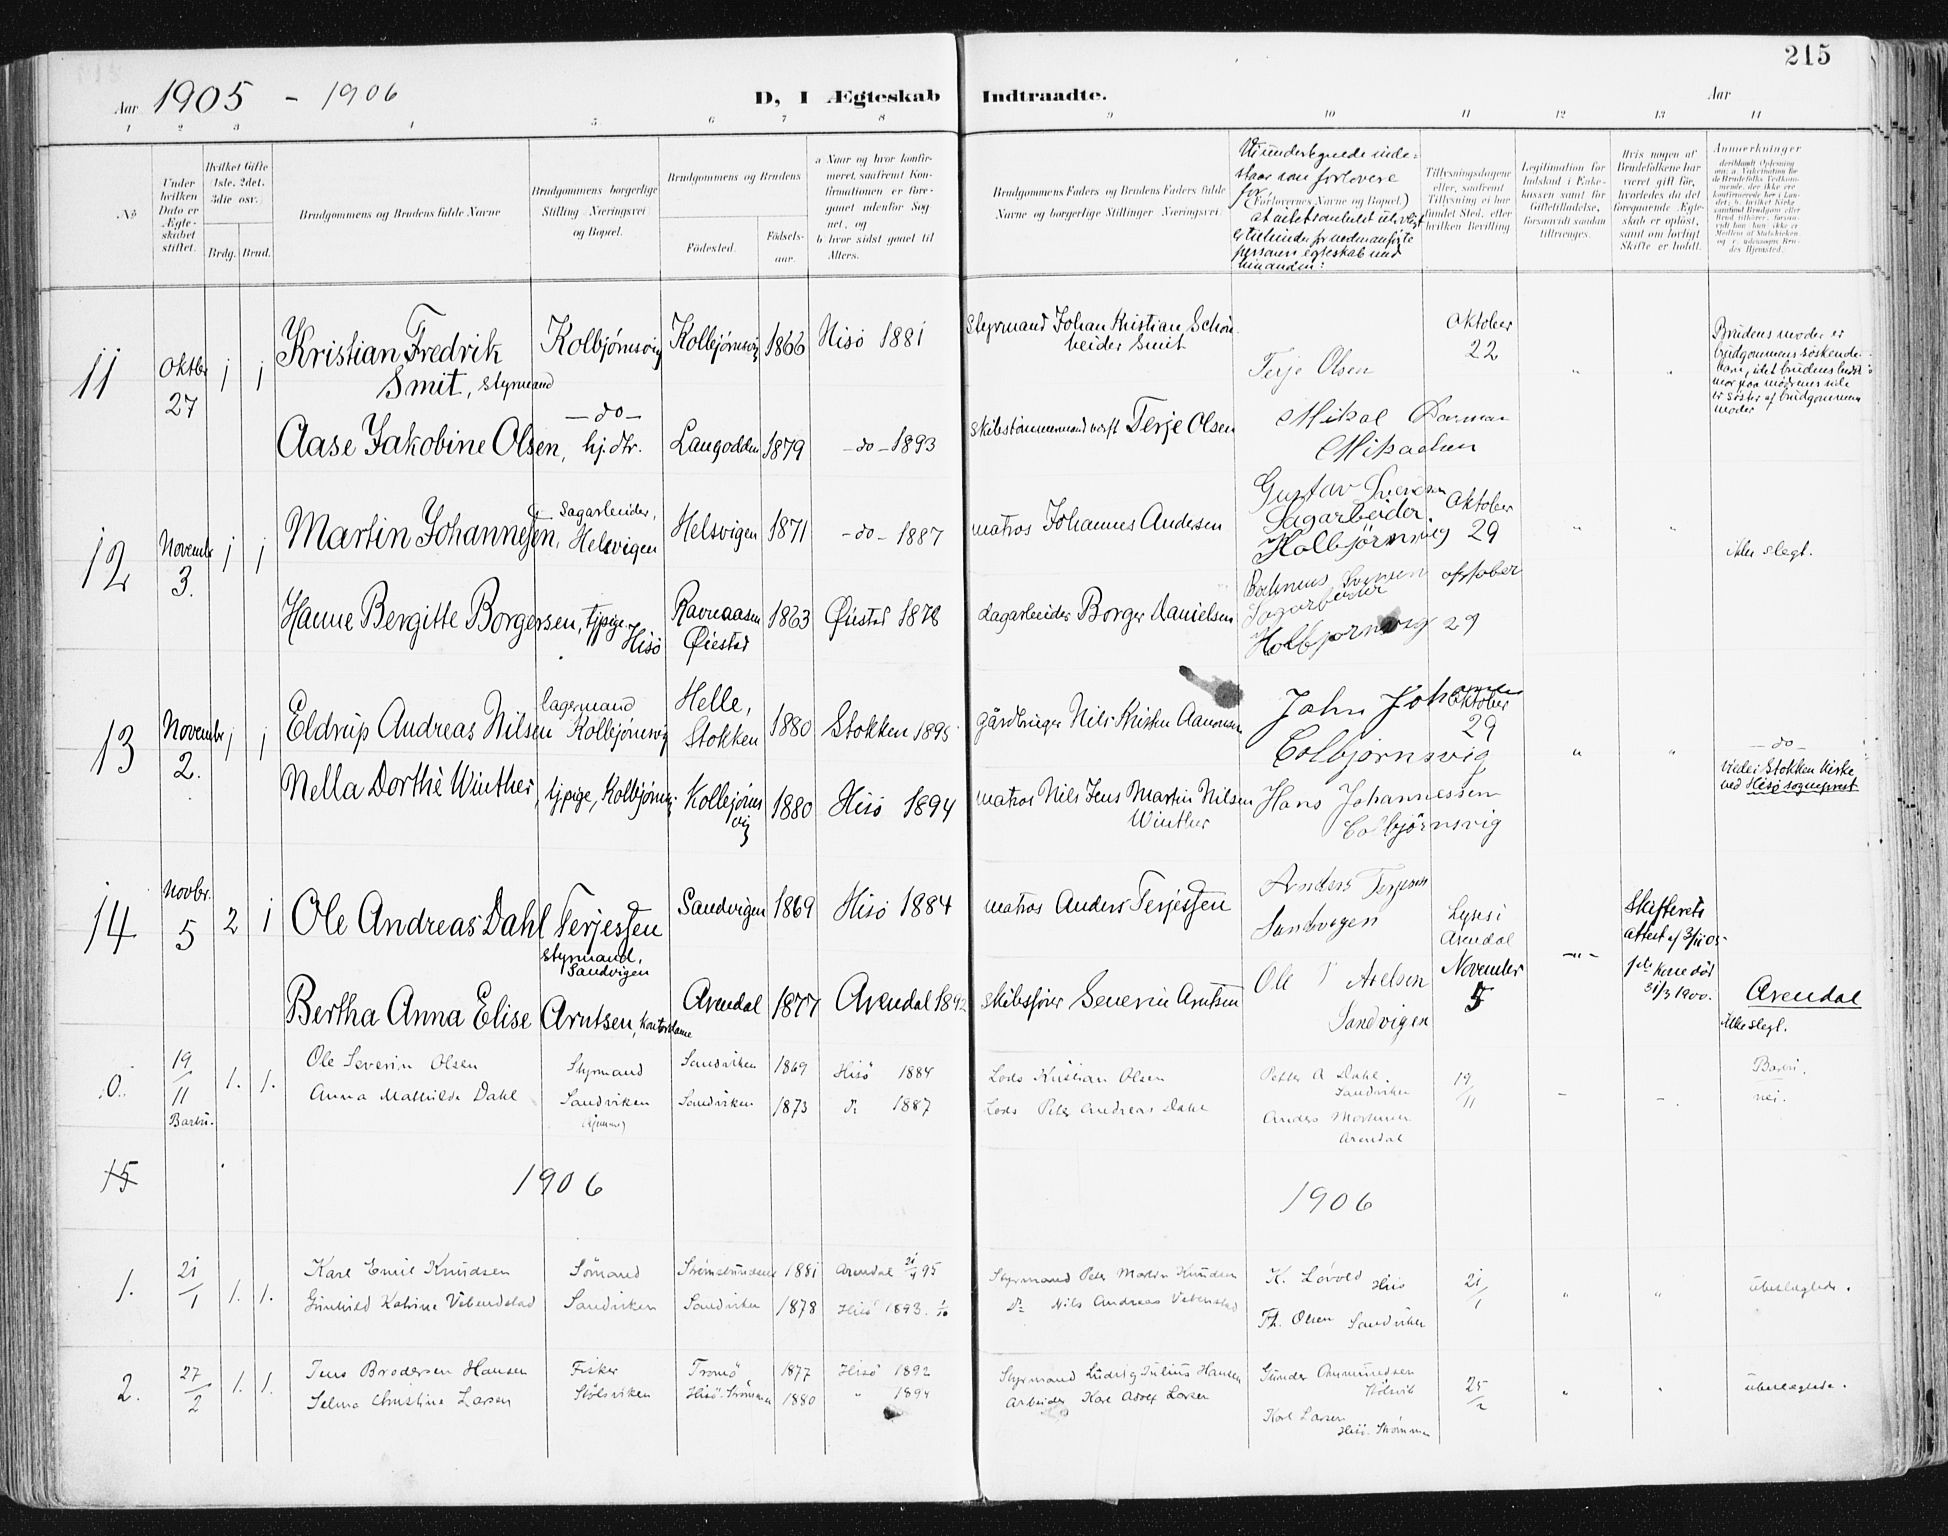 215
Aar 1905 - 1906
D, I Ægteskab Indtraadte.
Aar
1 2 3 4 5 6 7 8 9 10 11 12 13 14
No.
Under hvilken Dato er Ægteskabet stiftet.
Hvilket Gifte 1ste. 2det. 3die osv.
Brdg. Brud.
Brudgommens og Brudens fulde Navne
Brudgommens borgerlige Stilling Næringsvei og Bopæl.
Brudgommens og Brudens
Fødested.
Fødselsaar.
a Naar og hvor konfirmeret, saafremt Konfirmationen er foregaaet udenfor Sognet, og
b hvor sidst gaaet til Alters.
Brudgommens Faders og Brudens Faders fulde Navne og borgerlige Stillinger Næringsvei
Vi undertegnede indestaar som forlovere for
(Forlovernes Navne og Bopæl.)
Tillysningsdagene eller, saafremt Tillysning ei har fundet Sted, efter hvilken Bevilling
Legitimation for Indskud i Enkekassen samt for Giftetilladelse, forsaavidt saadan tiltrænges.
Hvis nogen af Brudefolkene har været gift før, hvorledes da det foregaaende Ægteskab er opløst, samt om lovligt Skifte er holdt.
Anmerkninger
11 Oktbr 27 1 1 Kristian Fredrik Smit, styrmand Kolbjørnsvig Kolbjørnsvig 1866 Hisö 1881 Styrmand Johan Kristian Schönheider Smit Terje Olsen Oktober 22 " "
Brudens moder er brudgommens søskendebarn, idet brudens bedstemor paa mødrene side er søster af brudgommens moder
Aase Jakobine Olsen, - do - hj. dtr. Langodden 1879 - do - 1893 skibstømmermand verft Terje Olsen Mikal Mikaelsen
12 Novembr 3. 1 1 Martin Johannessen, Sagarbeider, Helsvigen Helsvigen 1871 - do - 1887 matros Johannes Andersen Gustav Svensen Sagarbeider Kolbjörnsvig Oktober 29 " " ikke slegt.
Hanne Bergitte Borgersen, tjpige Hisö Ravneaasen Øiestad 1863 Øiestad 1878 dagarbeider Borger Danielsen Sagarbeider Kolbjornsvig oktober 29
13 Novembr 2. 1 1 Eldrup Andreas Nilsen lagermand Kolbjørnsvig Helle, Stokken 1880 Stokken 1895 gårdbruger Nils Kristen Aanonsen John Johansen Colbjørnsvig Oktober 29 " " - do -
viede i Stokken kirke ved Hisö sogneprest
Nella Dorthe Winther, tjpige, Kolbjørnsvig Kolbjørnsvig 1880 Hisö 1894 matros Nils Jens Martin Nilsen Winther Hans Johannessen Colbjörnsvig
14 Novbr. 5 2 1 Ole Andreas Dahl Terjessen styrmand, Sandvigen Sandvigen 1869 Hisö 1884 matros Anders Terjessen Anders Terjesen Sandvigen Lyses i Arendal November 5 - " -
Skifterets attest af 3/11 05 - 1ste kone død 31/3 1900.
Bertha Anna Elise Arntsen, Kontordame Arendal 1877 Arendal 1892 skibsfører Severin Arntsen Ole T Axelsen Sandvigen Arendal
ikke slegt.
0. 19/11 Barbu. 1. 1. Ole Severin Olsen Styrmand Sandviken 1869 Hisö 1884 Lods Kristian Olsen Petter A Dahl, Sandviken 19/11 - - Barbu.
Anna Mathilde Dahl Sandviken (hjemme) Sandviken 1873 do 1887 Lods Peter Andreas Dahl Anders Mortensen Arendal nei.
15
1906 1906
1. 21/1 1. 1. Karl Emil Knudsen Sömand Strømsbunden 1881 Arendal 21/4 95 Styrmand Peter Martin Knudsen K. Løvold Hisö 21/1 " " ubeslægtede.
Gunhild Katrine Vebenstad Sandviken Sandviken 1878 Hisö 1893. 1/10 Do Nils Andreas Vebenstad Th. Olsen Sandviken
2. 27/2 1. 1. Jens Brodersen Hansen Fisker Tromö 1877 Hisö 1892 Styrmand Ludvig Julius Hansen Gunder Ommundsen Stølsvik 25/2 " " ubeslægtede.
Selma Christine Larsen Stølsviken Hisö. Strømmen 1880 " 1894 Arbeider Karl Adolf Larsen Karl Larsen Hisö. Strømmen